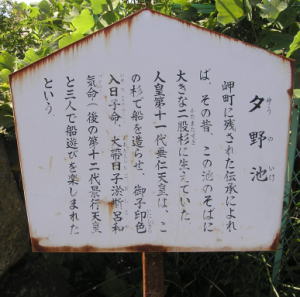 夕野池
ゆう の いけ
岬町に残された伝承によれ
ば、その昔、この池のそばに
大きな二股杉に生えていた
人皇第十一代垂仁天皇は、こ
の杉で船を造らせ、御子印色
入日子命、大帯日子淤斯呂和
気命(後の第十二代景行天皇
と三人で船遊びを楽しまれた
という